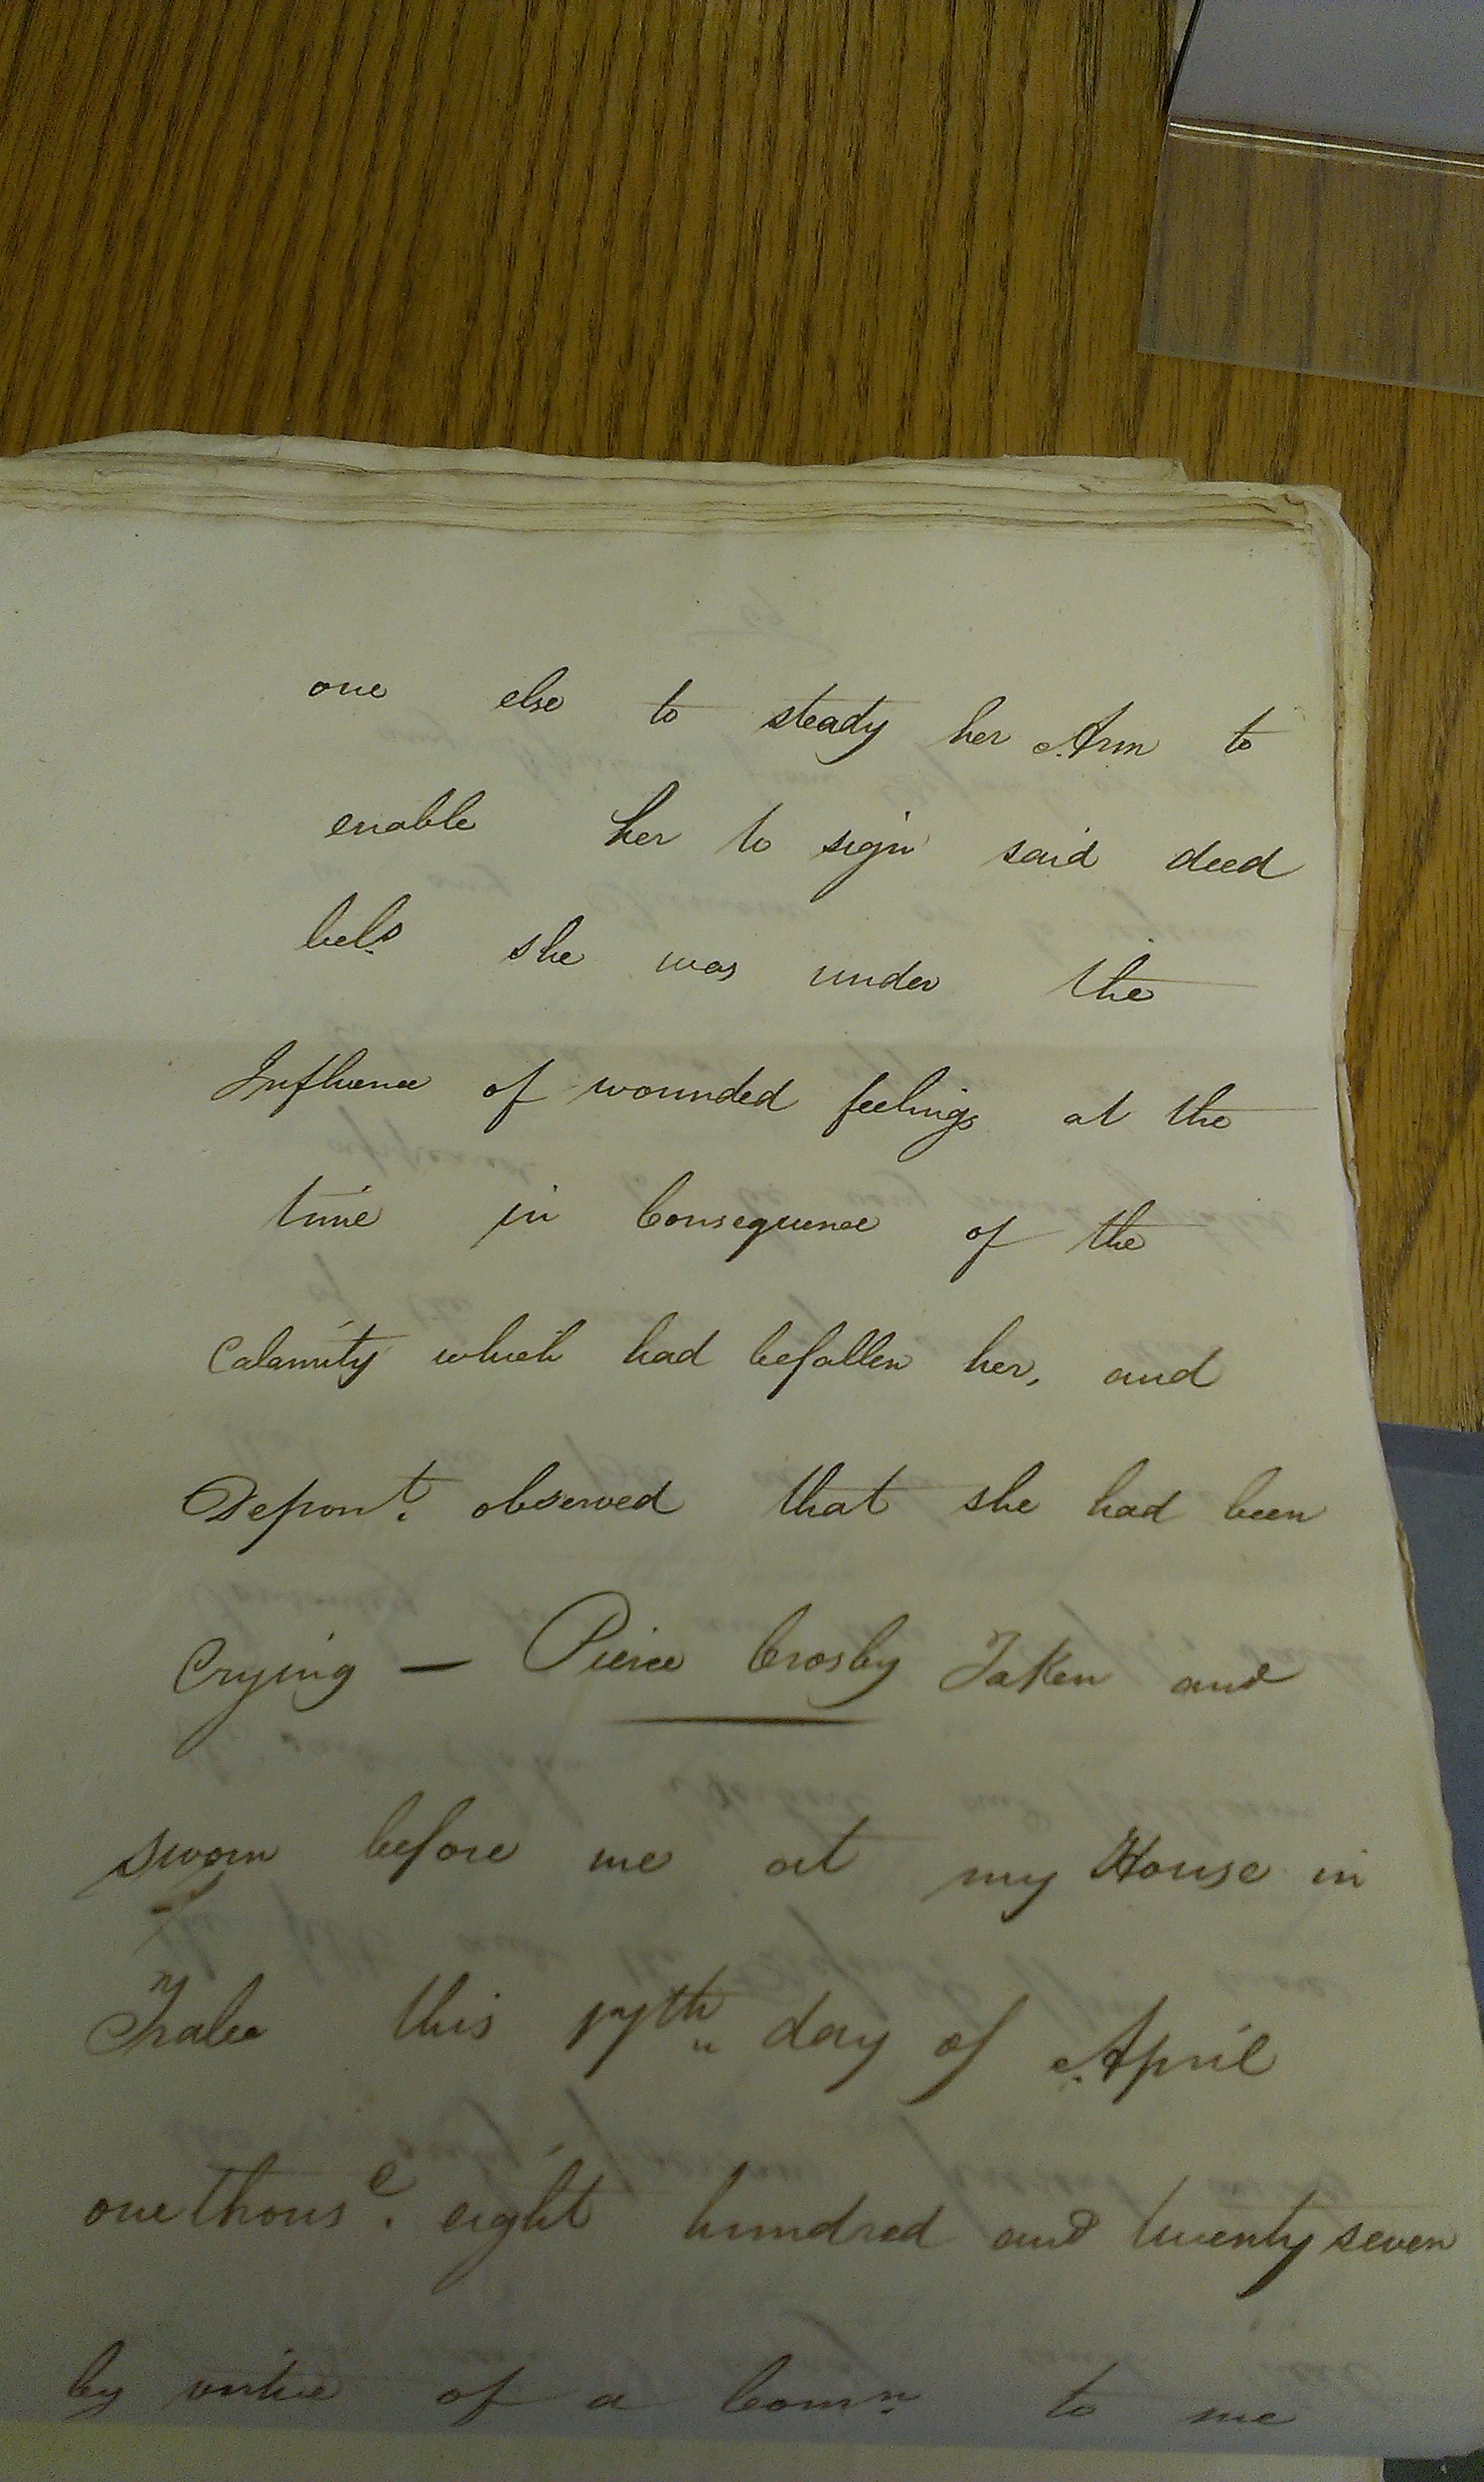 one else to steady her Arm to
enable her to sign said deed
bels she was under the
Influence of wounded feelings at the
time in Consequence of the
Calamity which had befallen her, and
Depont. observed that she had been
Crying — Pierce Crosby Taken and
sworn before me at my House in
Tralee this 17th day of April
one thousd. eight hundred and twenty seven
by virtue of a Comn. to me